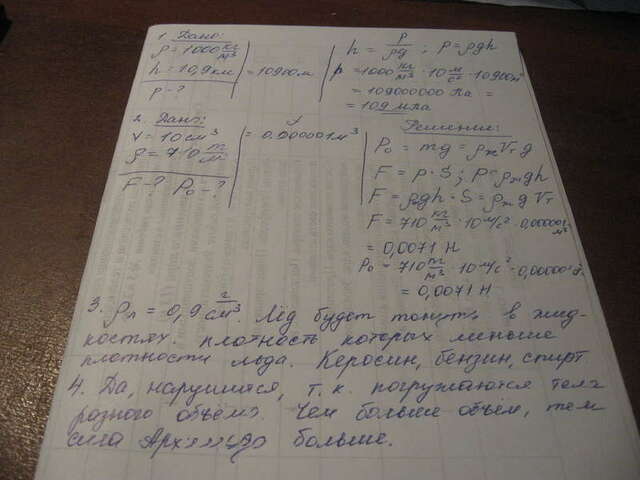 1. Дано:
ρ = 1000 кг/м³
h = 10,9 км = 10900 м
p - ?
h = P/ρg ; P = ρgh
p = 1000 кг/м³ · 10 м/с² · 10900 м
= 109000000 Па =
= 109 мПа
2. Дано:
V = 10 см³ = 0,000001 м³
ρ = 710 м³
F - ? P₀ - ?
Решение:
P₀ = mg = ρжVтg
F = p · S ; P = ρжgh
F = ρgh · S = ρжgVт
F = 710 м³ · 10 м/с² · 0,00000 м³
= 0,0071 Н
P₀ = 710 м³ · 10 м/с² · 0,00000
= 0,0071 Н
3. ρл = 0,9 г/см³. Лёд будет тонуть в жид-
костях. плотность которых меньше
плотности льда. Керосин, бензин, спирт
4. Да, нарушится, т.к. погружаются тела
разного объёма. Чем больше объём, тем
сила больше.